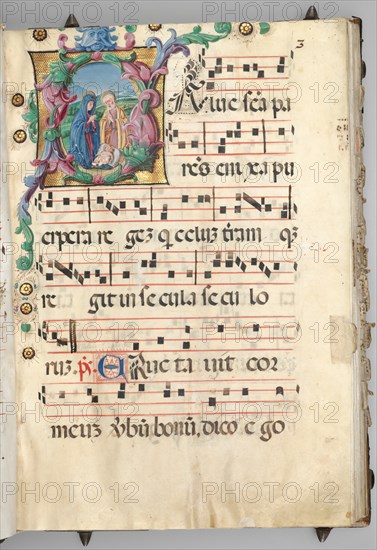 3
SAlue scā pa
rēs enixa pu
erpera re gez q celuz trām qz
re git in se cula se cu lo
ruz. ps. Eruc ta uit cor
meuz v̄bū bonū, dico e go
PHOTO 12